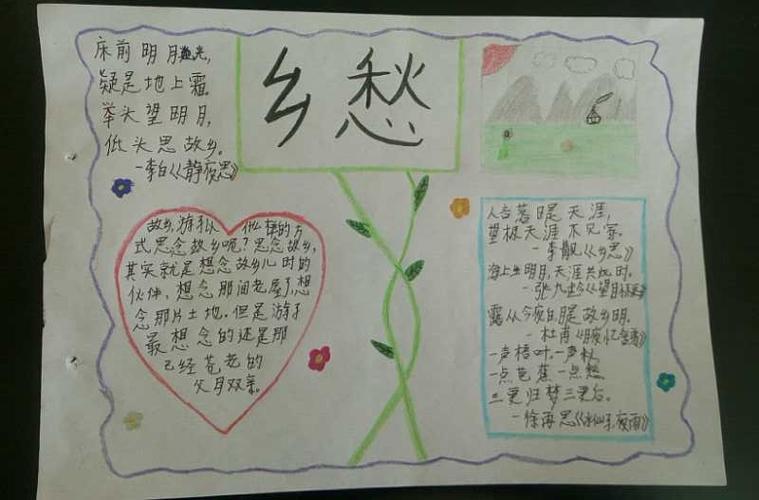 乡愁
床前明月光,
疑是地上霜.
举头望明月,
低头思故乡.
—李白《静夜思》
故乡游
样的方
式思念故乡呢?思念故乡,
其实就是想念故乡儿时的
伙伴,想念那间老屋,想
念那片土地.但是游子
最想念的还是那
已经苍老的
父母双亲.
人言落日是天涯,
望极天涯不见家.
—李觏《乡思》
海上生明月,天涯共此时.
—张九龄《望月怀远》
露从今夜白,月是故乡明.
—杜甫《月夜忆舍弟》
一声梧叶一声秋,
一点芭蕉一点愁,
三更归梦三更后.
—徐再思《水仙子·夜雨》